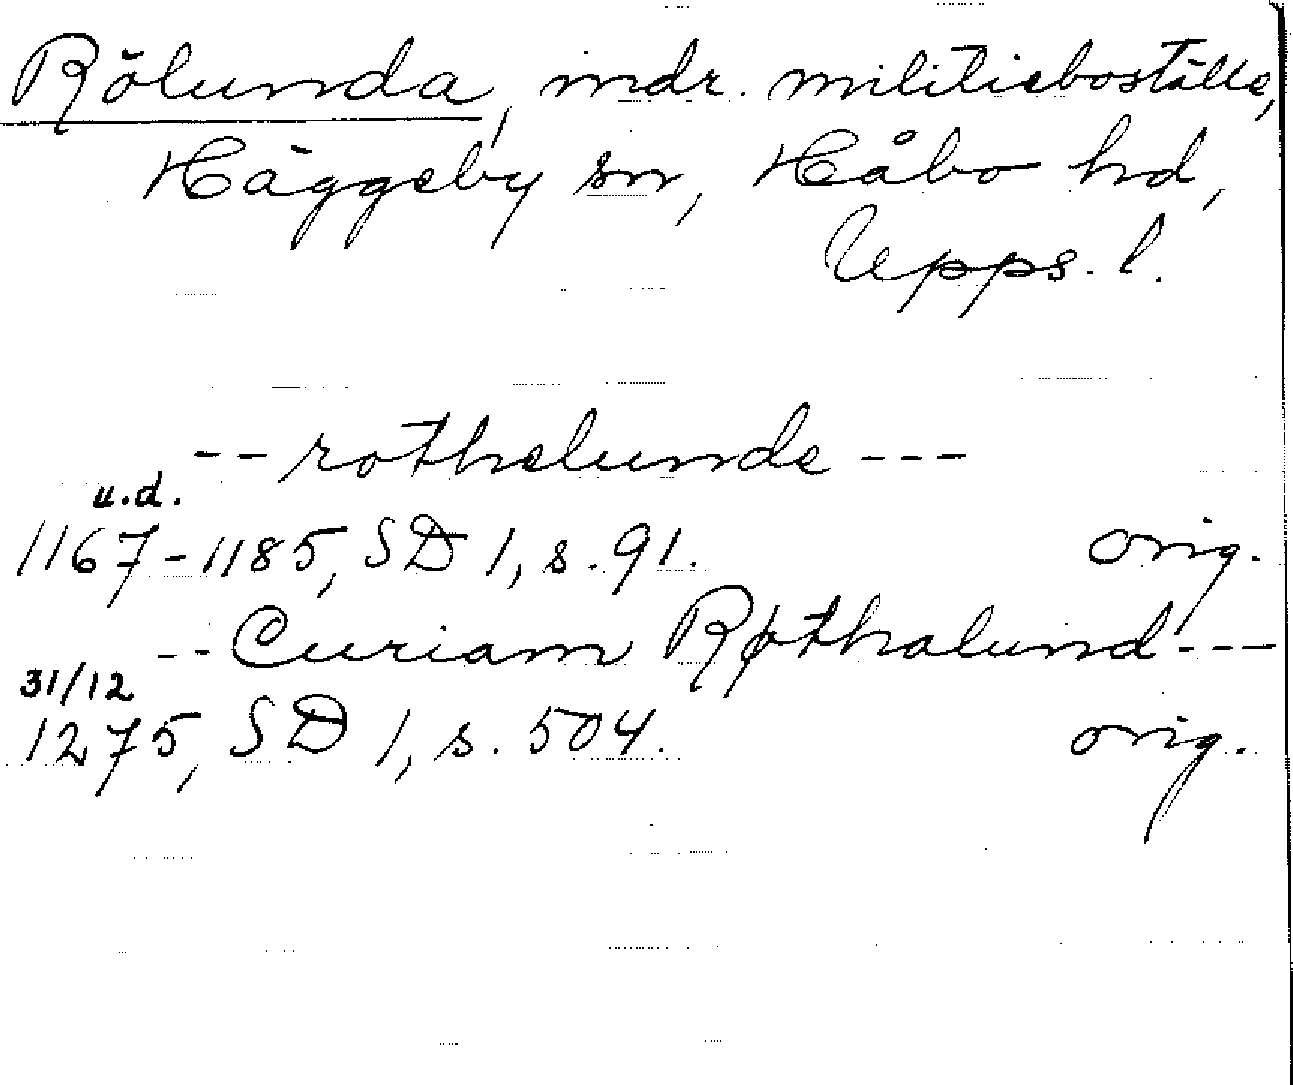 Rölunda, mdr. militieboställe,
Häggeby sn, Håbo hd,
Upps. l.
-- rothelunde ---
u.d.
1167-1185, SD 1, s. 91. orig.
-- Curiam Røthalund ---
31/12
1275, SD 1, s. 504. orig.